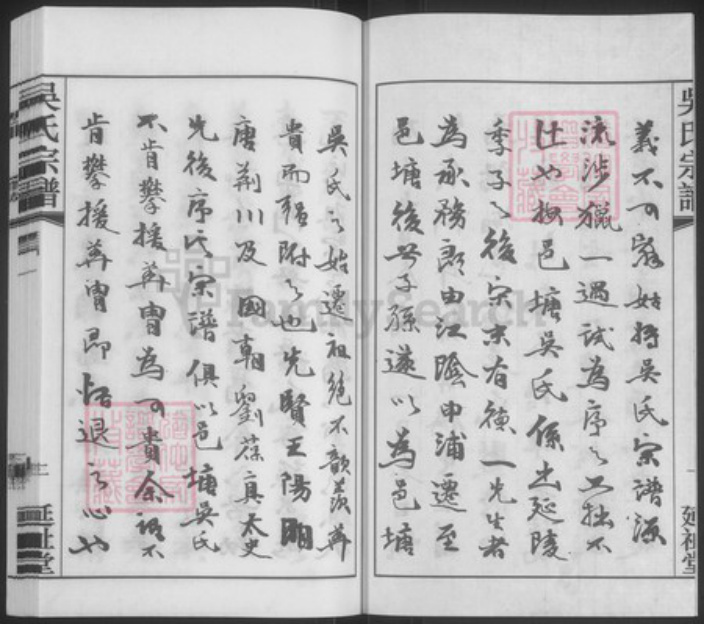 吳氏宗譜
延祉堂
義不可辭始將吳氏宗譜源
流涉獵一過試為序之工拙不
計也按邑塘吳氏係出延陵
季子之後宋末有德一先生者
為承務郎由江陰申浦遷至
邑塘後世子孫遂以為邑塘
吳氏之始遷祖絕不歆羨華
貴而強附之也先賢王陽明
唐荊川及國朝劉葆真太史
先後序氏宗譜俱以邑塘吳氏
不肯攀援華胄為可貴余謂不
肯攀援華胄即恬退之心也
吳氏宗譜
延祉堂
FamilySearch